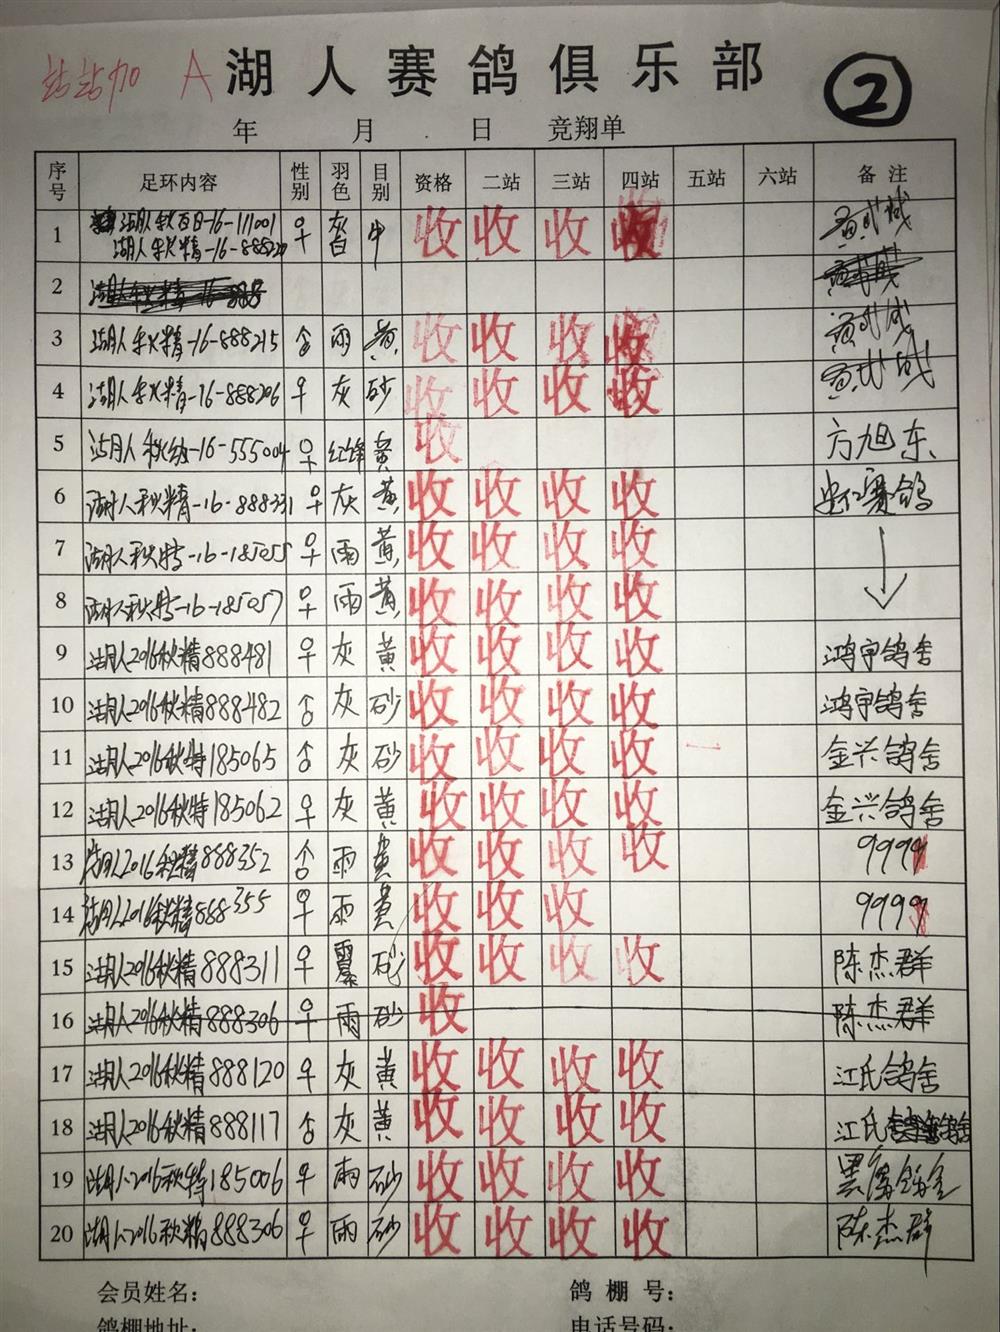 站站加 A 湖人赛鸽俱乐部 ②
年 月 日 竞翔单
序号 足环内容 性别 羽色 目别 资格 二站 三站 四站 五站 六站 备注
1 湖人秋百日-16-111001 ♀ 牛 收 收 收 收
湖人秋精-16-888220
2
3 湖人秋精-16-888215 雨 黄 收 收 收 收
4 湖人秋精-16-888206 ♀ 灰 砂 收 收 收 收
5 湖人秋 -16-555004 ♀ 红绛 黄 收 方旭东
6 湖人秋精-16-888331 ♀ 灰 黄 收 收 收 收 赛鸽
7 湖人秋特-16-185055 ♀ 雨 黄 收 收 收 收
8 湖人秋特-16-185057 ♀ 雨 黄 收 收 收 收
9 湖人2016秋精888481 ♀ 灰 黄 收 收 收 收 鸿宇鸽舍
10 湖人2016秋精888482 灰 砂 收 收 收 收 鸿宇鸽舍
11 湖人2016秋特185065 灰 砂 收 收 收 收 金兴鸽舍
12 湖人2016秋特185062 ♀ 灰 黄 收 收 收 收 金兴鸽舍
13 湖人2016秋精888352 雨 黄 收 收 收 收 9999
14 湖人2016秋精888355 ♀ 雨 黄 收 收 收 9999
15 湖人2016秋精888311 ♀ 砂 收 收 收 收 陈杰群
16 湖人2016秋精888306 ♀ 雨 砂 收 陈杰群
17 湖人2016秋精888120 ♀ 灰 黄 收 收 收 收 江氏鸽舍
18 湖人2016秋精888117 灰 黄 收 收 收 收 江氏
19 湖人2016秋特185006 ♀ 雨 砂 收 收 收 收
20 湖人2016秋精888306 ♀ 雨 砂 收 收 收 收 陈杰群
会员姓名： 鸽棚号：
鸽棚地址： 电话号码：